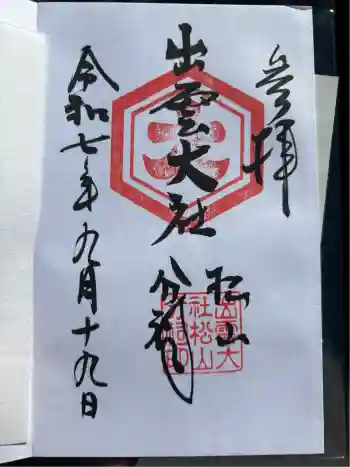 参拝
出雲大社
松山
分祠
令和七年九月十九日
出雲大
社松山